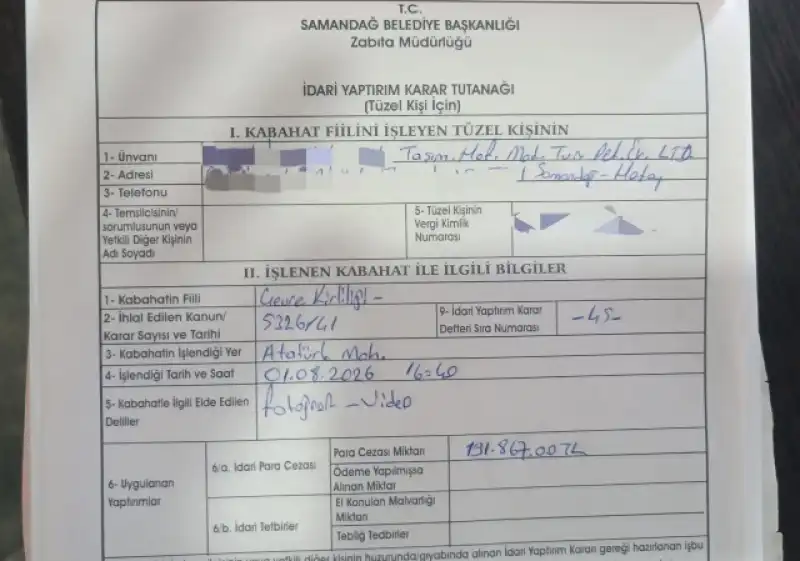 T.C.
SAMANDAĞ BELEDİYE BAŞKANLIĞI
Zabıta Müdürlüğü
İDARİ YAPTIRIM KARAR TUTANAĞI
(Tüzel Kişi İçin)
I. KABAHAT FİİLİNİ İŞLEYEN TÜZEL KİŞİNİN
1- Ünvanı Taşım. Mot. Mak. Tur. Pet. LTD
2- Adresi Samandağ - Hatay
3- Telefonu
4- Temsilcisinin/
sorumlusunun veya
Yetkili Diğer Kişinin
Adı Soyadı
5- Tüzel Kişinin
Vergi Kimlik
Numarası
II. İŞLENEN KABAHAT İLE İLGİLİ BİLGİLER
1- Kabahatin Fiili Çevre Kirliliği -
2- İhlal Edilen Kanun/
Karar Sayısı ve Tarihi 5326/41
9- İdari Yaptırım Karar
Defteri Sıra Numarası -45-
3- Kabahatin İşlendiği Yer Atatürk Mah.
4- İşlendiği Tarih ve Saat 01.08.2026 16:40
5- Kabahatle İlgili Elde Edilen
Deliller fotoğraf - Video
6- Uygulanan
Yaptırımlar
6/a. İdari Para Cezası
Para Cezası Miktarı 191.867.00 TL
Ödeme Yapılmışsa
Alınan Miktar
6/b. İdari Tetbirler
El Konulan Malvarlığı
Miktarı
Tebliğ Tedbirler
yetkili diğer kişinin huzurunda/gıyabında alınan İdari Yaptırım Kararı gereği hazırlanan işbu